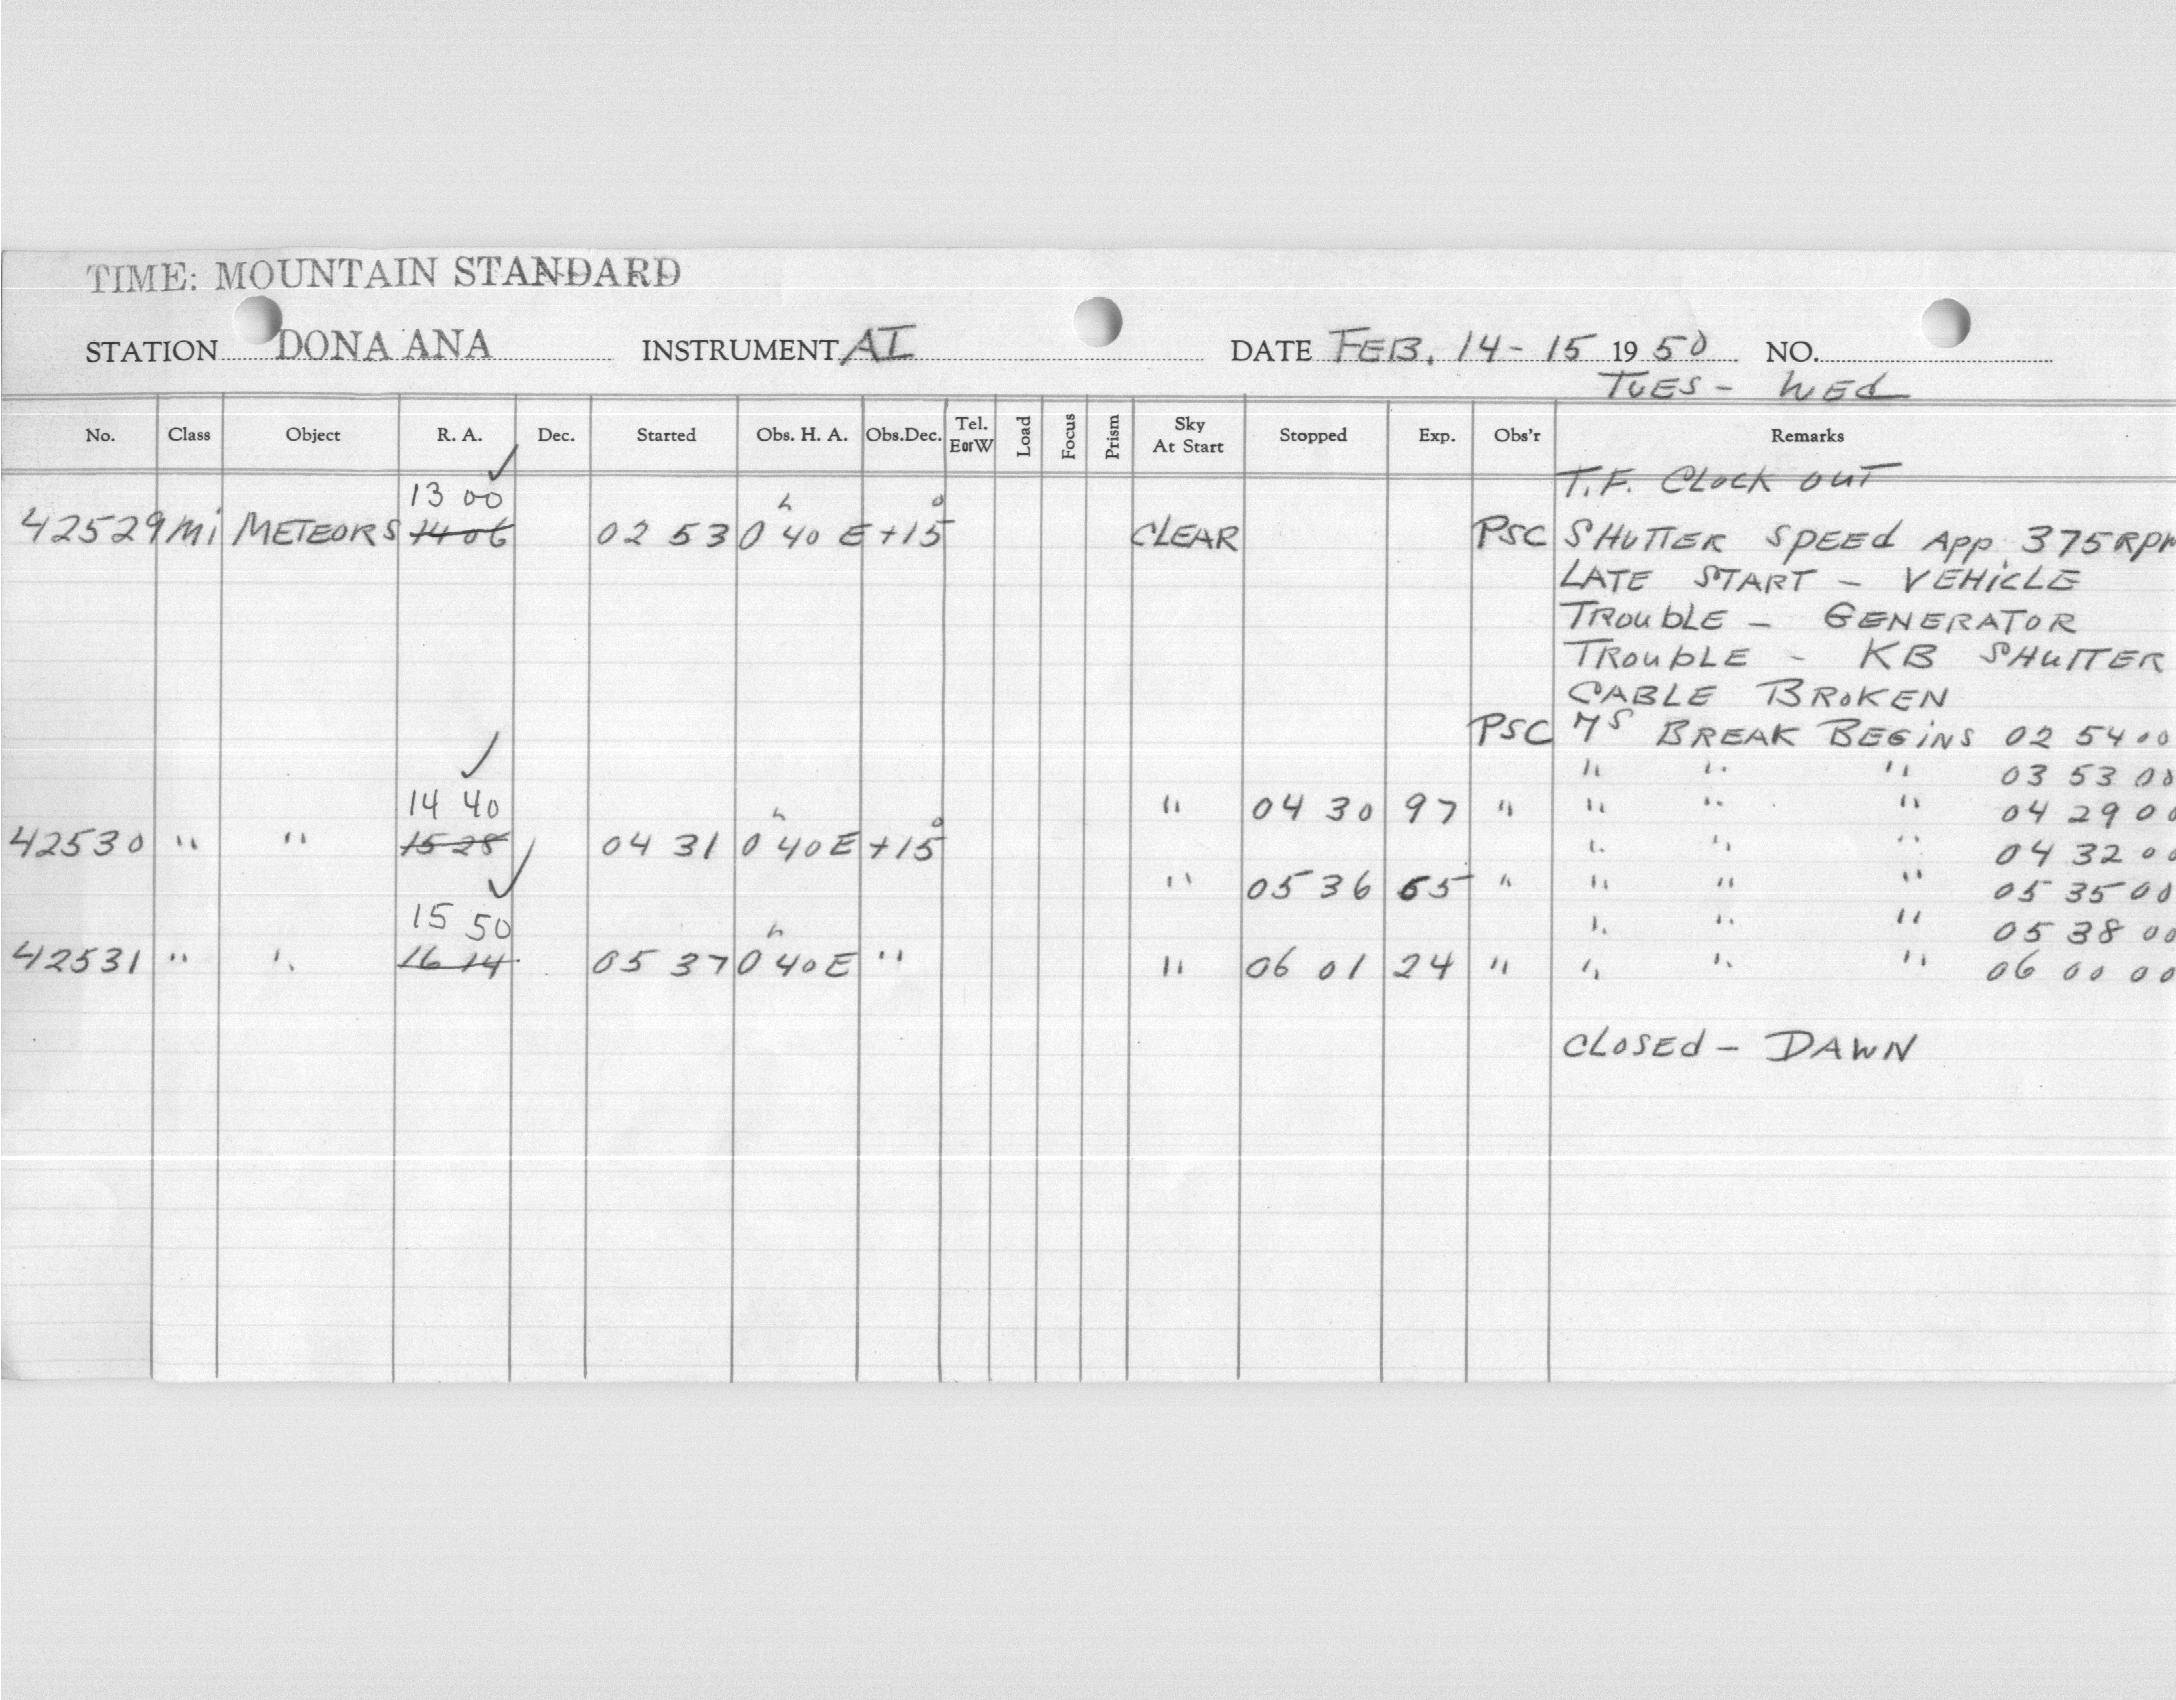 TIME: MOUNTAIN STANDARD
STATION DONA ANA INSTRUMENT AI DATE FEB. 14-15 1950 NO.
TUES - WEd
No. Class Object R. A. Dec. Started Obs. H. A. Obs.Dec. Tel. E or W Load Focus Prism Sky At Start Stopped Exp. Obs'r Remarks
T.F. CLOCK OUT
13 00
42529 Mi METEORS 14 06 02 53 0h 40 E +15° CLEAR PSC SHUTTER SPEEd APP. 375 RPM
LATE START - VEHiCLE
TROubLE - GENERATOR
TROubLE - KB SHUTTER
CABLE BROKEN
PSC 7S BREAK BEGiNS 02 54 00
" " " 03 53 00
14 40 " 04 30 97 " " " " 04 29 00
42530 " " 15 28 04 31 0h 40 E +15° " " " 04 32 00
" 05 36 65 " " " " 05 35 00
15 50 " " " 05 38 00
42531 " " 16 14 05 37 0h 40 E " " 06 01 24 " " " " 06 00 00
CLOSEd - DAWN